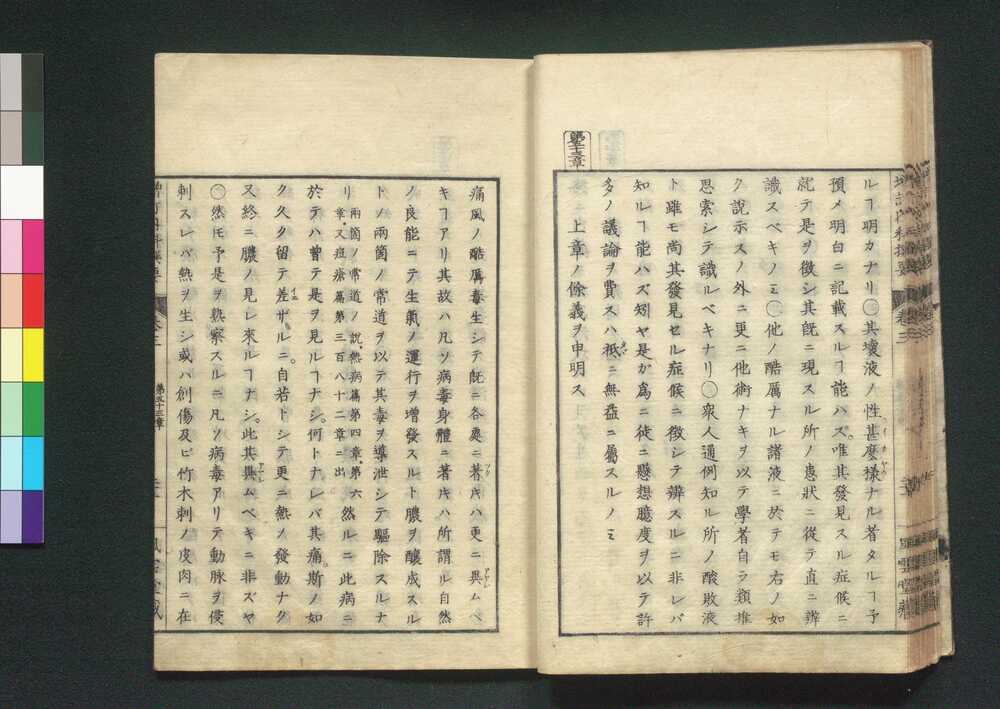 ルヿ明カナリ○其壞液ノ性甚麼樣ナル者タルヿ予
預メ明白ニ記載スルヿ能ハズ。唯其發見スル症候ニ
就テ是ヲ徴シ其既ニ現スル所ノ患狀ニ從テ直ニ辨
識スベキノミ○他ノ酷厲ナル諸液ニ於テモ右ノ如
ク說示スノ外ニ更ニ他術ナキヲ以テ學者自ラ類推
思索シテ識ルベキナリ○衆人通例知ル所ノ酸敗液
ト雖モ尚其發見セル症候ニ徴シテ辨スルニ非レバ
知ルヿ能ハズ矧ヤ是カ爲ニ徒ニ懸想臆度ヲ以テ許
多ノ議論ヲ費スハ祗ニ無益ニ屬スルノミ
第五十三章
上章ノ餘義ヲ申明ス
痛風ノ酷厲毒生シテ既ニ各處ニ著キハ更ニ異ムベ
キヿアリ其故ハ凡ソ病毒身體ニ著キハ所謂ル自然
ノ良能ニテ生氣ノ運行ヲ增發スルト膿ヲ釀成スル
トノ兩箇ノ常道ヲ以テ其毒ヲ導泄シテ驅除スルナ
リ兩箇ノ常道ノ說、熱病篇第四章、第六章、又痘瘡篇第三百八十二章ニ出然ルニ此病ニ
於テハ曾テ是ヲ見ルヿナシ。何トナレバ其痛斯ノ如
ク久ク留テ差ザルニ。自若トシテ更ニ熱ノ發動ナク
又終ニ膿ノ見レ來ルヿナシ。此其異ムベキニ非ズヤ
○然𪜈予是ヲ熟察スルニ凡ソ病毒アリテ動脉ヲ侵
刺スレバ熱ヲ生シ或ハ創傷及ビ竹木刺ノ皮肉ニ在
卷三
第五十三章